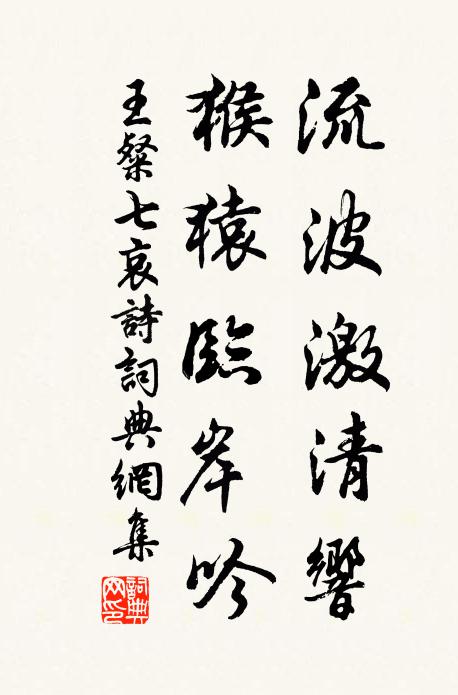 流波激清響
猴猿臨岸吟
王粲七哀詩詞典網集
詞典網印